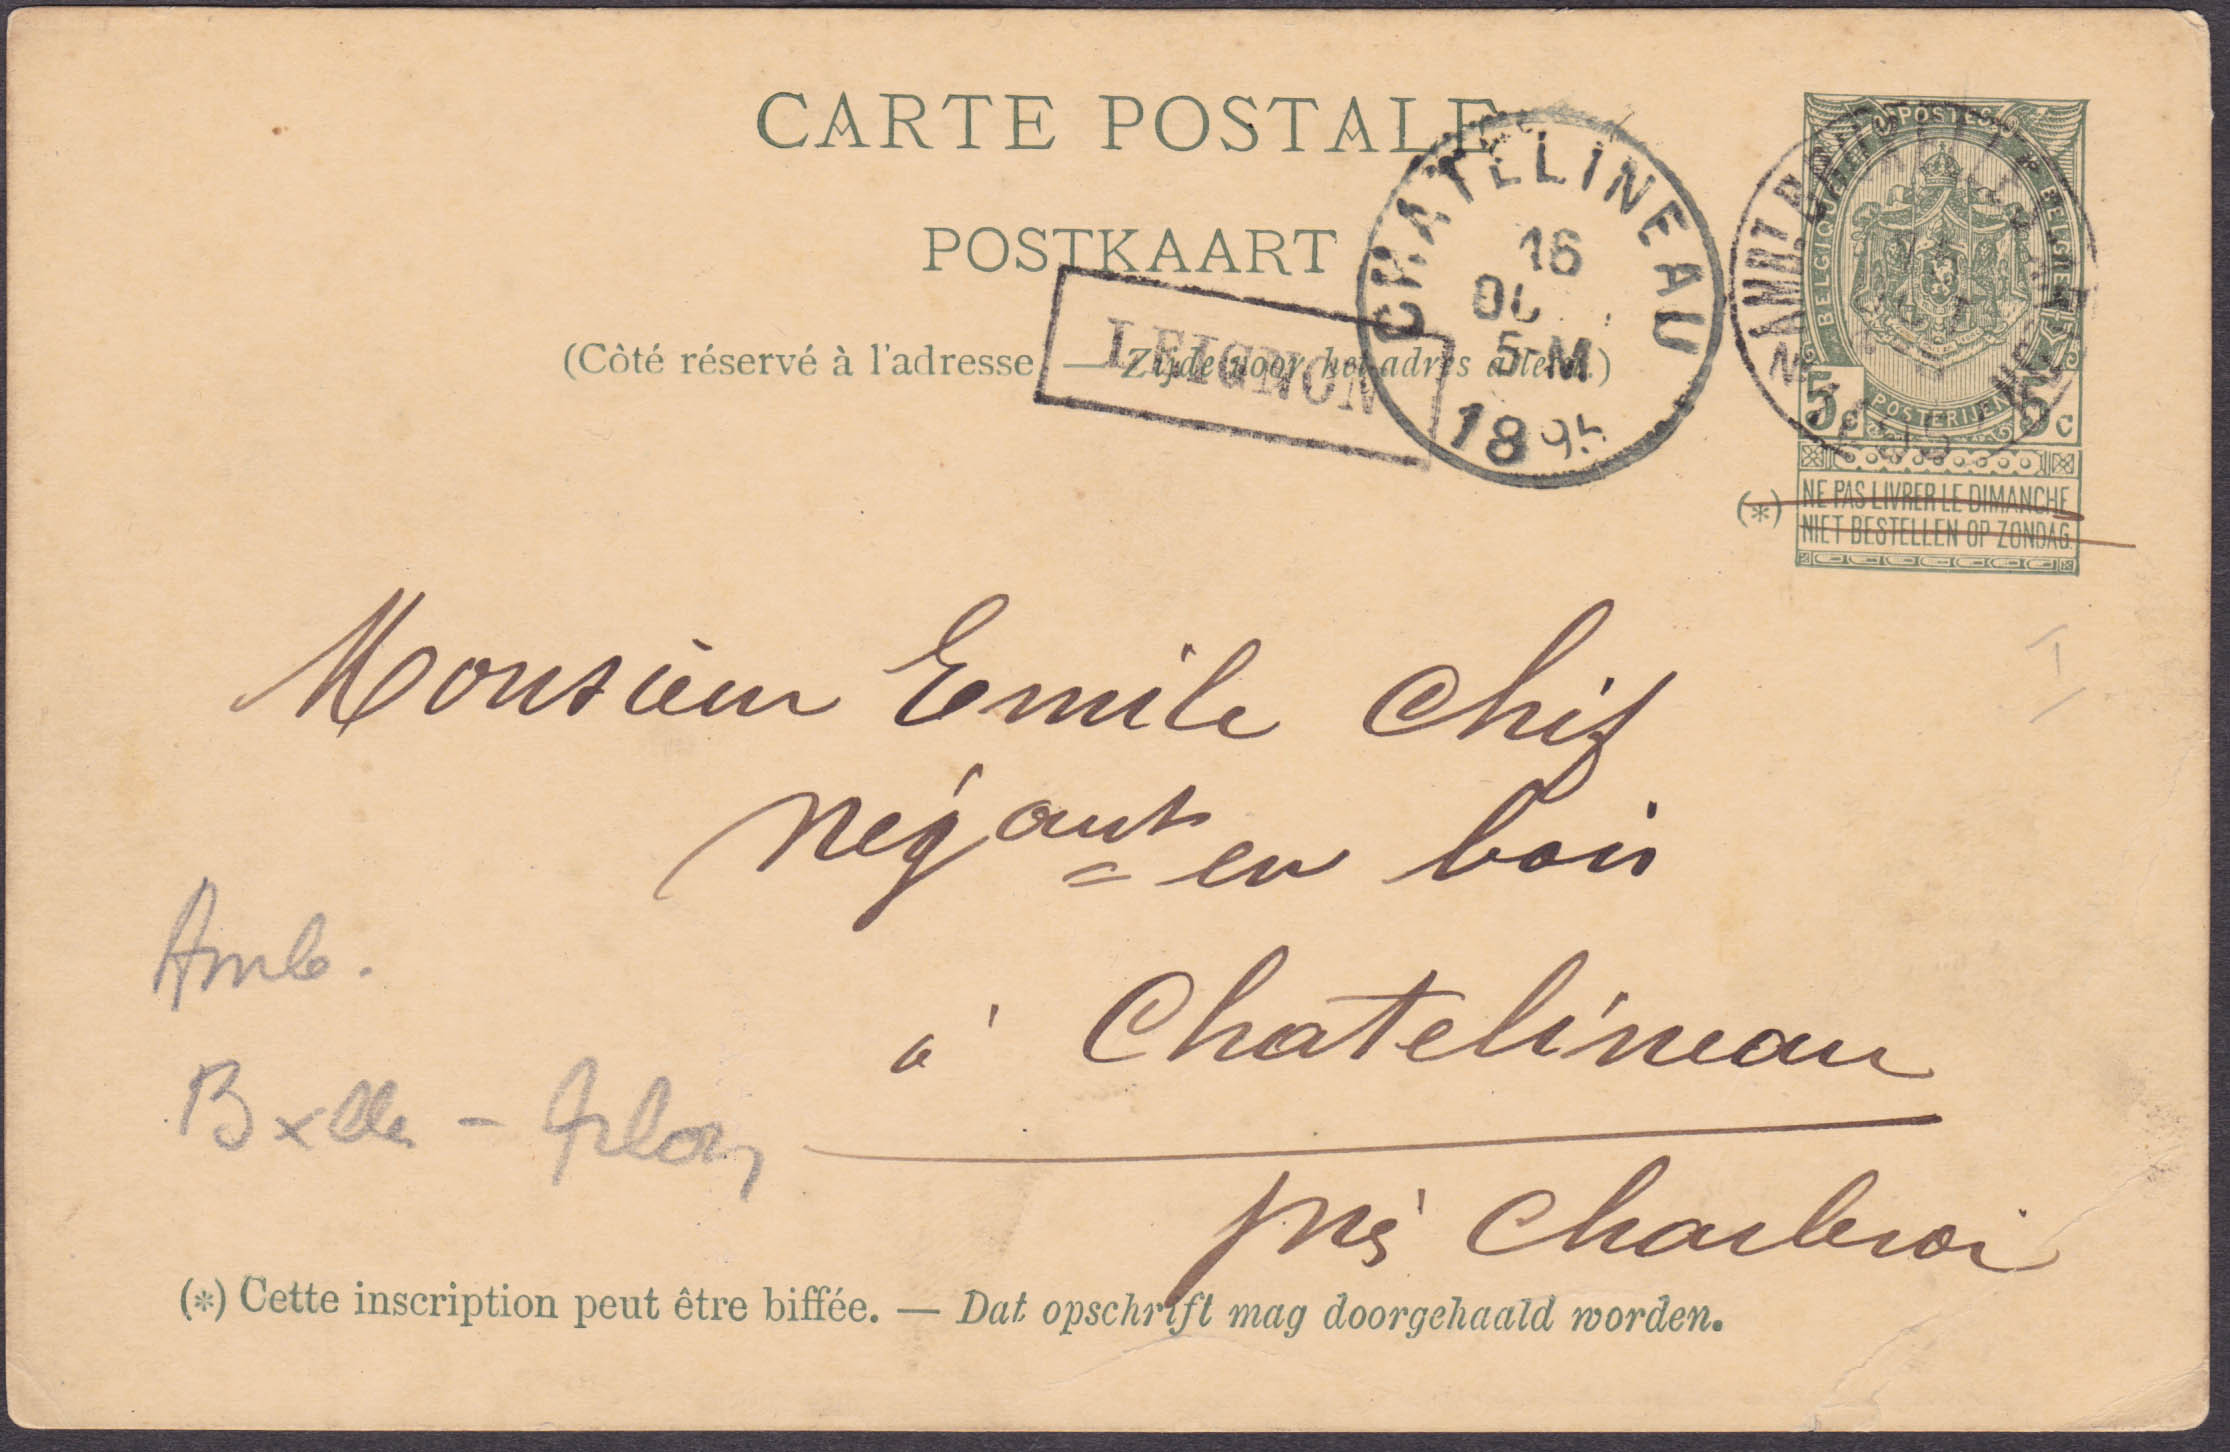 CARTE POSTALE
POSTKAART
(Côté réservé à l'adresse — Zijde voor het adres alleen.)
LEIGNON
CHATELINEAU
16
5-M
1895
AMBT.
POSTES
BELGIQUE BELGIË
POSTERIJEN
5c 5c
(*) NE PAS LIVRER LE DIMANCHE
NIET BESTELLEN OP ZONDAG.
Monsieur Emile
Négant en bois
à Chatelineau
près Charleroi
Amb.
Bxlles - Arlon
(*) Cette inscription peut être biffée. — Dat opschrift mag doorgehaald worden.